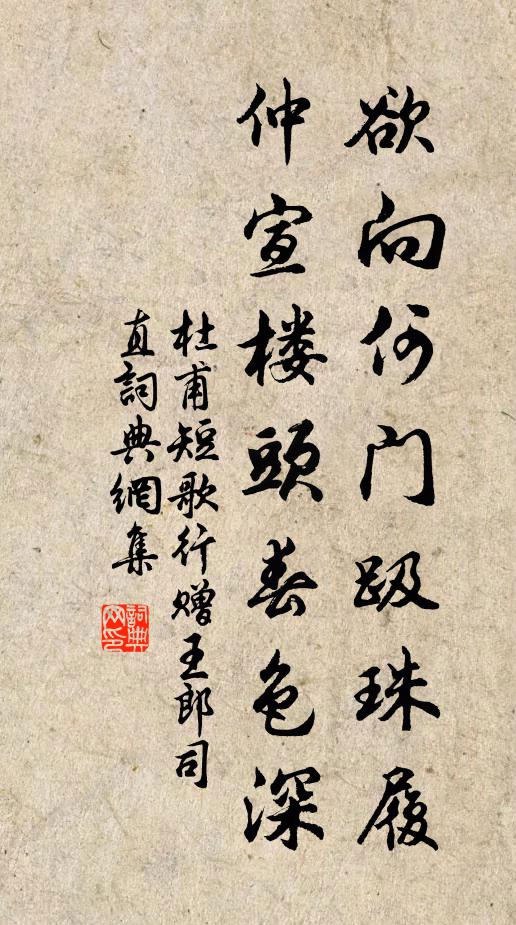 欲向何门趿珠履
仲宣楼頭春色深
杜甫短歌行赠王郎司
直詞典網集
詞典
网印